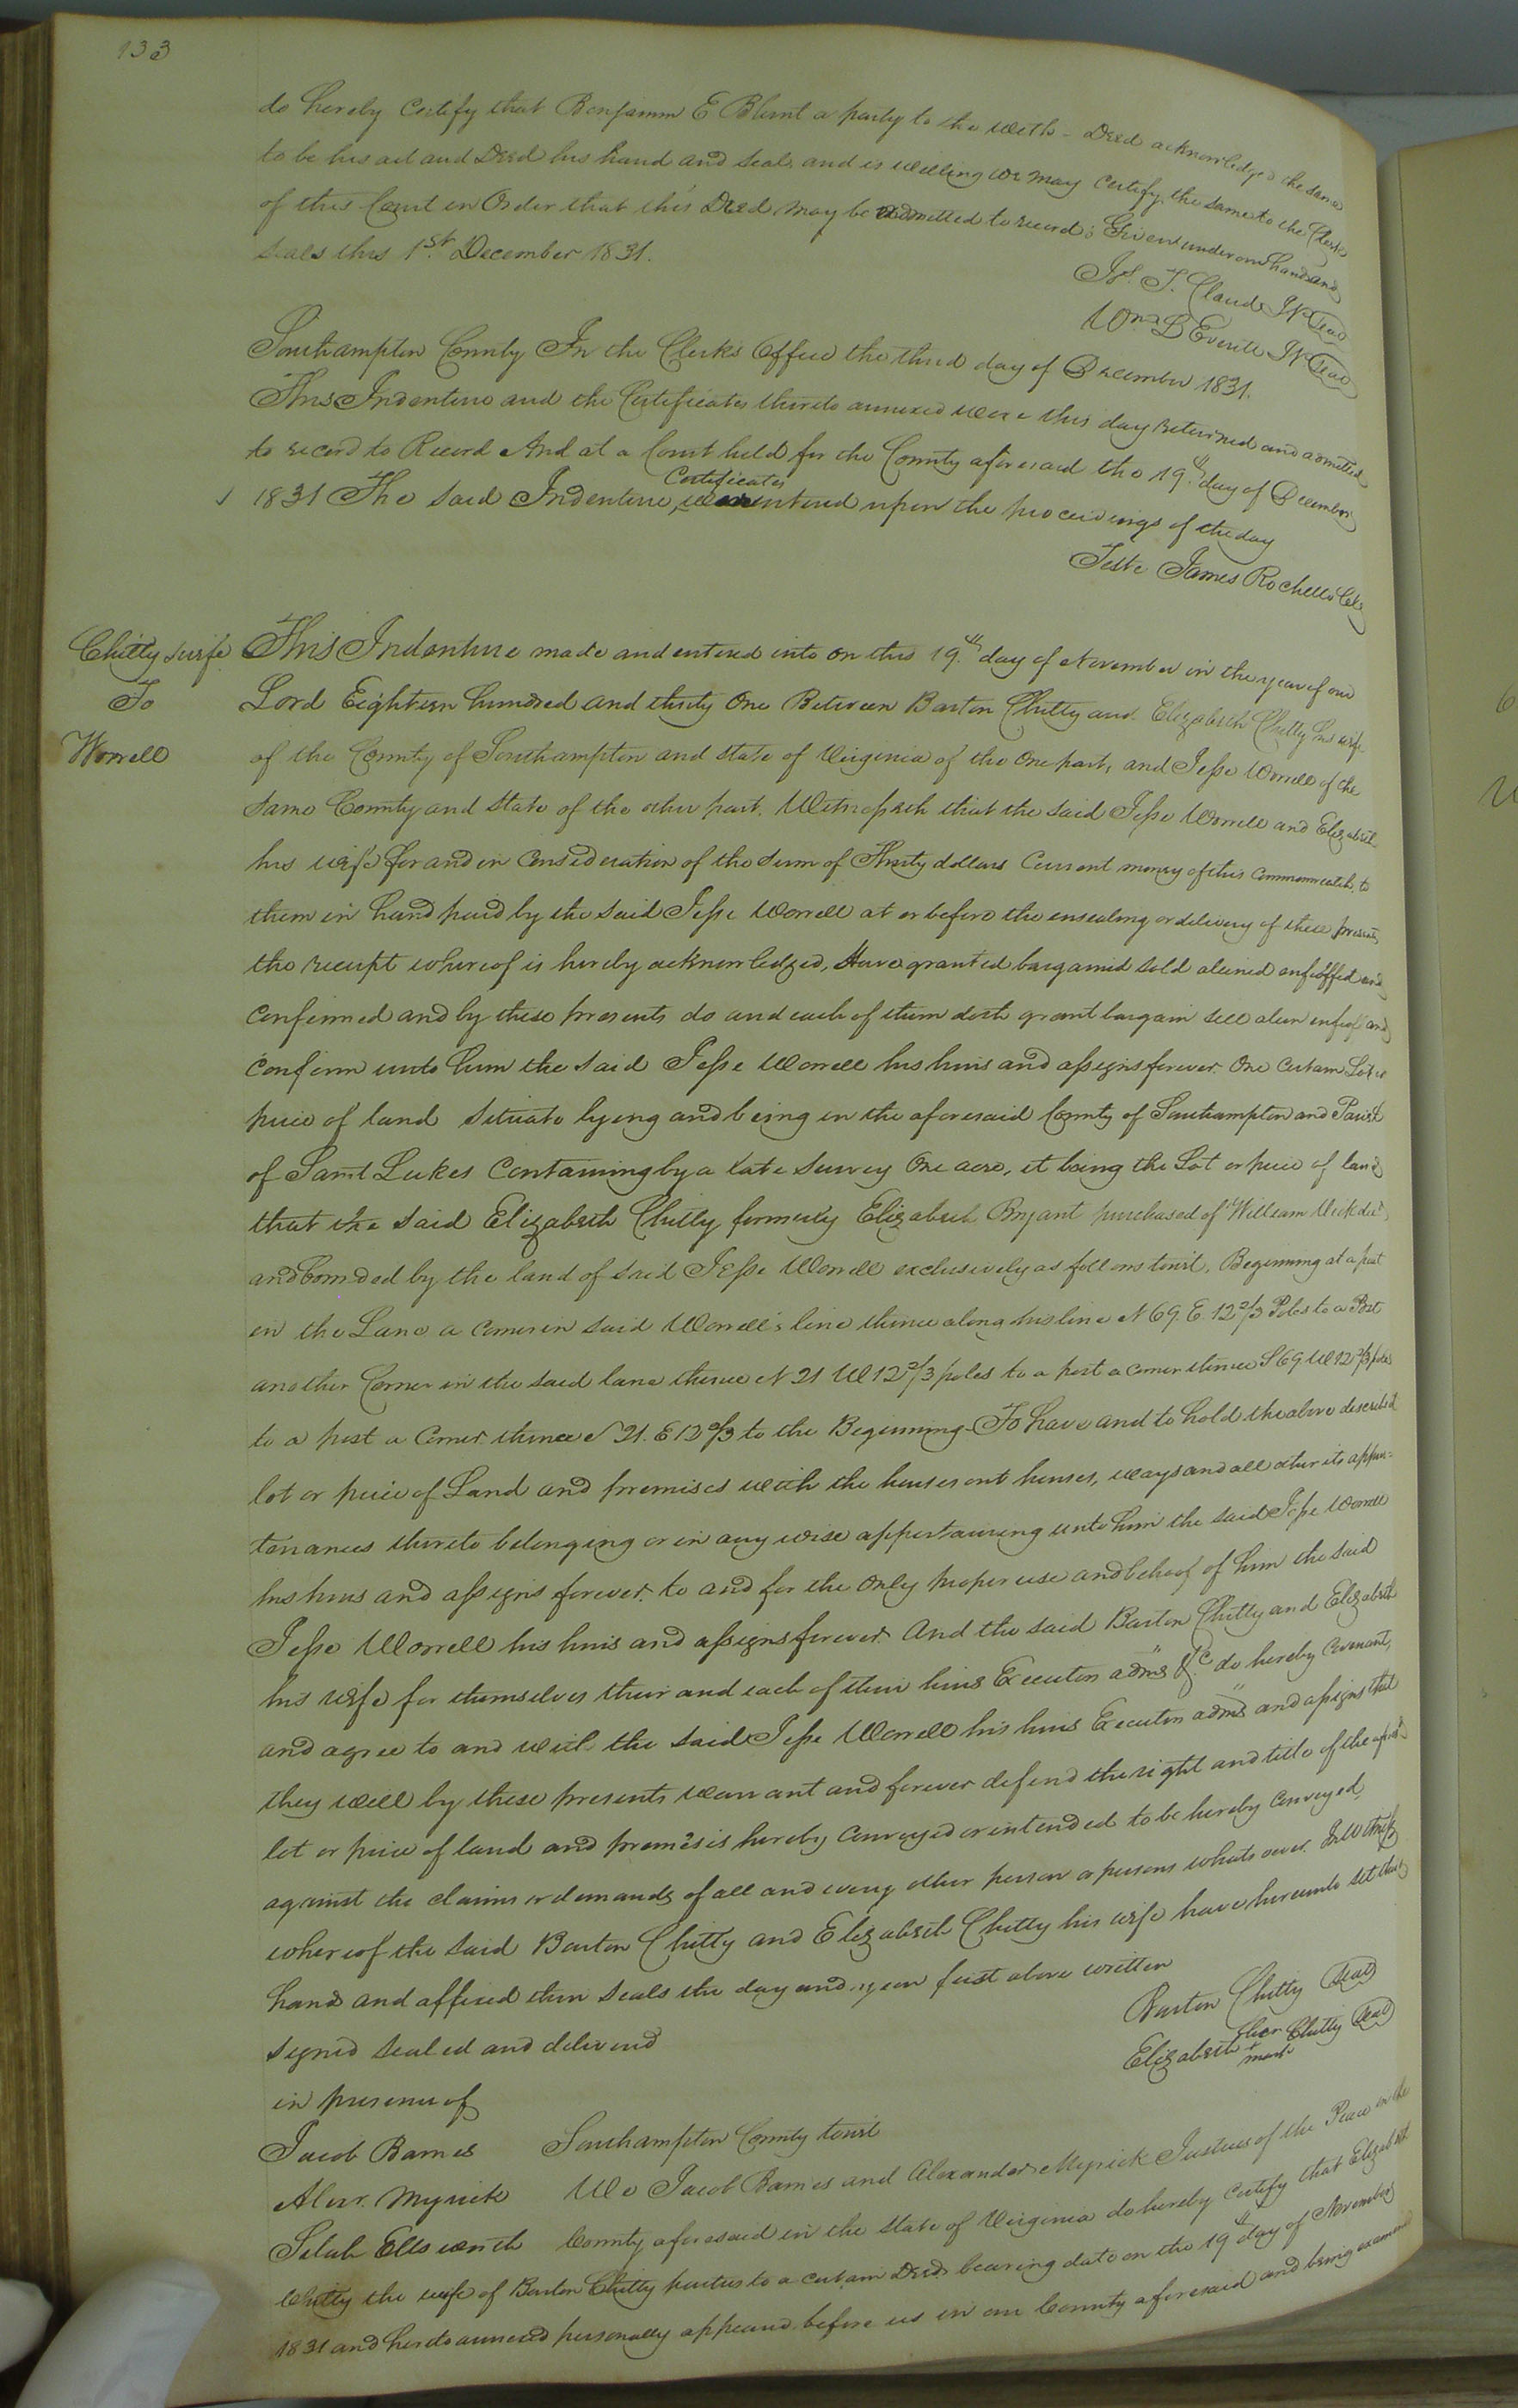 133
do hereby certify that Benjamin E Blunt a party to the with- Deed acknowledged the same
to be his act and Deed his hand and seal, and is willing we may certify the same to the Clerk
of this Court in Order that this Deed may be admitted to record; Given under our hands and
seals this 1st. December 1831.
Js. T. Claud JP Seal
Wm B Everitt JP Seal
Southampton County In the Clerks Office the third day of December 1831.
This Indenture and the Certificates thereto annexed were this day returned and admitted
to record to Record And at a Court held for the County aforesaid the 19th day of December
1831 The said Indenture, Certificates were entered upon the proceedings of the day
Teste James Rochelle Clk
Chitty & wife
To
Worrell
This Indenture made and entered into on this 19th day of November in the year of our
Lord Eighteen hundred and thirty One Between Barton Chitty and Elizabeth Chitty his wife
of the County of Southampton and State of Virginia of the One part, and Jesse Worrell of the
same County and State of the other part. Witnesseth that the said Jesse Worrell and Elizabeth
his wife for and in Consideration of the sum of Thirty dollars Current money of this Commonwealth, to
them in hand paid by the said Jesse Worrell at or before the ensealing or delivery of these presents
the receipt whereof is hereby acknowledged, Have granted bargained sold aliened enfeoffed and
confirmed and by these presents do and each of them doth grant bargain sell alien enfeoff and
confirm unto him the said Jesse Worrell his heirs and assigns forever. One Certain Lot or
piece of land situate lying and being in the aforesaid County of Southampton and Parish
of Saint Lukes Containing by a late survey One acre, it being the Lot or piece of land
that the said Elizabeth Chitty formerly Elizabeth Bryant purchased of William Vick decd.
and bounded by the land of said Jesse Worrell exclusively as follows towit, Beginning at a post
in the Lane a corner in said Worrell's line thence along his line N 69. E. 12 2/3 Poles to a Post
another Corner in the said lane thence N 21 W 12 2/3 poles to a post a corner thence S 69 W 12 2/3 poles
to a post a Corner thence S 21. E 12 2/3 to the Beginning- To have and to hold the above described
lot or piece of Land and premises with the houses out houses, ways and all other its appur=
tenances thereto belonging or in any wise appertaining unto him the said Jesse Worrell
his heirs and assigns forever. to and for the Only proper use and behoof of him the said
Jesse Worrell his heirs and assigns forever. And the said Barton Chitty and Elizabeth
his wife for themselves their and each of their heirs Executors adms &c do hereby Covenant,
and agree to and with the said Jesse Worrell his heirs Executors adms and assigns that
they will by these presents warrant and forever defend the right and title of the aforesd.
lot or piece of land and premises hereby Conveyed or intended to be hereby Conveyed,
against the claims or demands of all and every other person or persons whatsoever. In Witness
whereof the said Barton Chitty and Elizabeth Chitty his wife have hereunto set their
hands and affixed their seals the day and year first above written
Barton Chitty Seal
Elizabeth her + mark Chitty Seal
Signed Sealed and delivered
in presence of
Jacob Barnes
Alexr. Myrick
Selah Ellsworth
Southampton County towit
We Jacob Barnes and Alexander Myrick Justices of the Peace in the
County aforesaid in the State of Virginia do hereby Certify that Elizabeth
Chitty the wife of Barton Chitty parties to a certain Deed bearing date on the 19th day of November
1831 and hereto annexed personally appeared before us in our County aforesaid and being examined